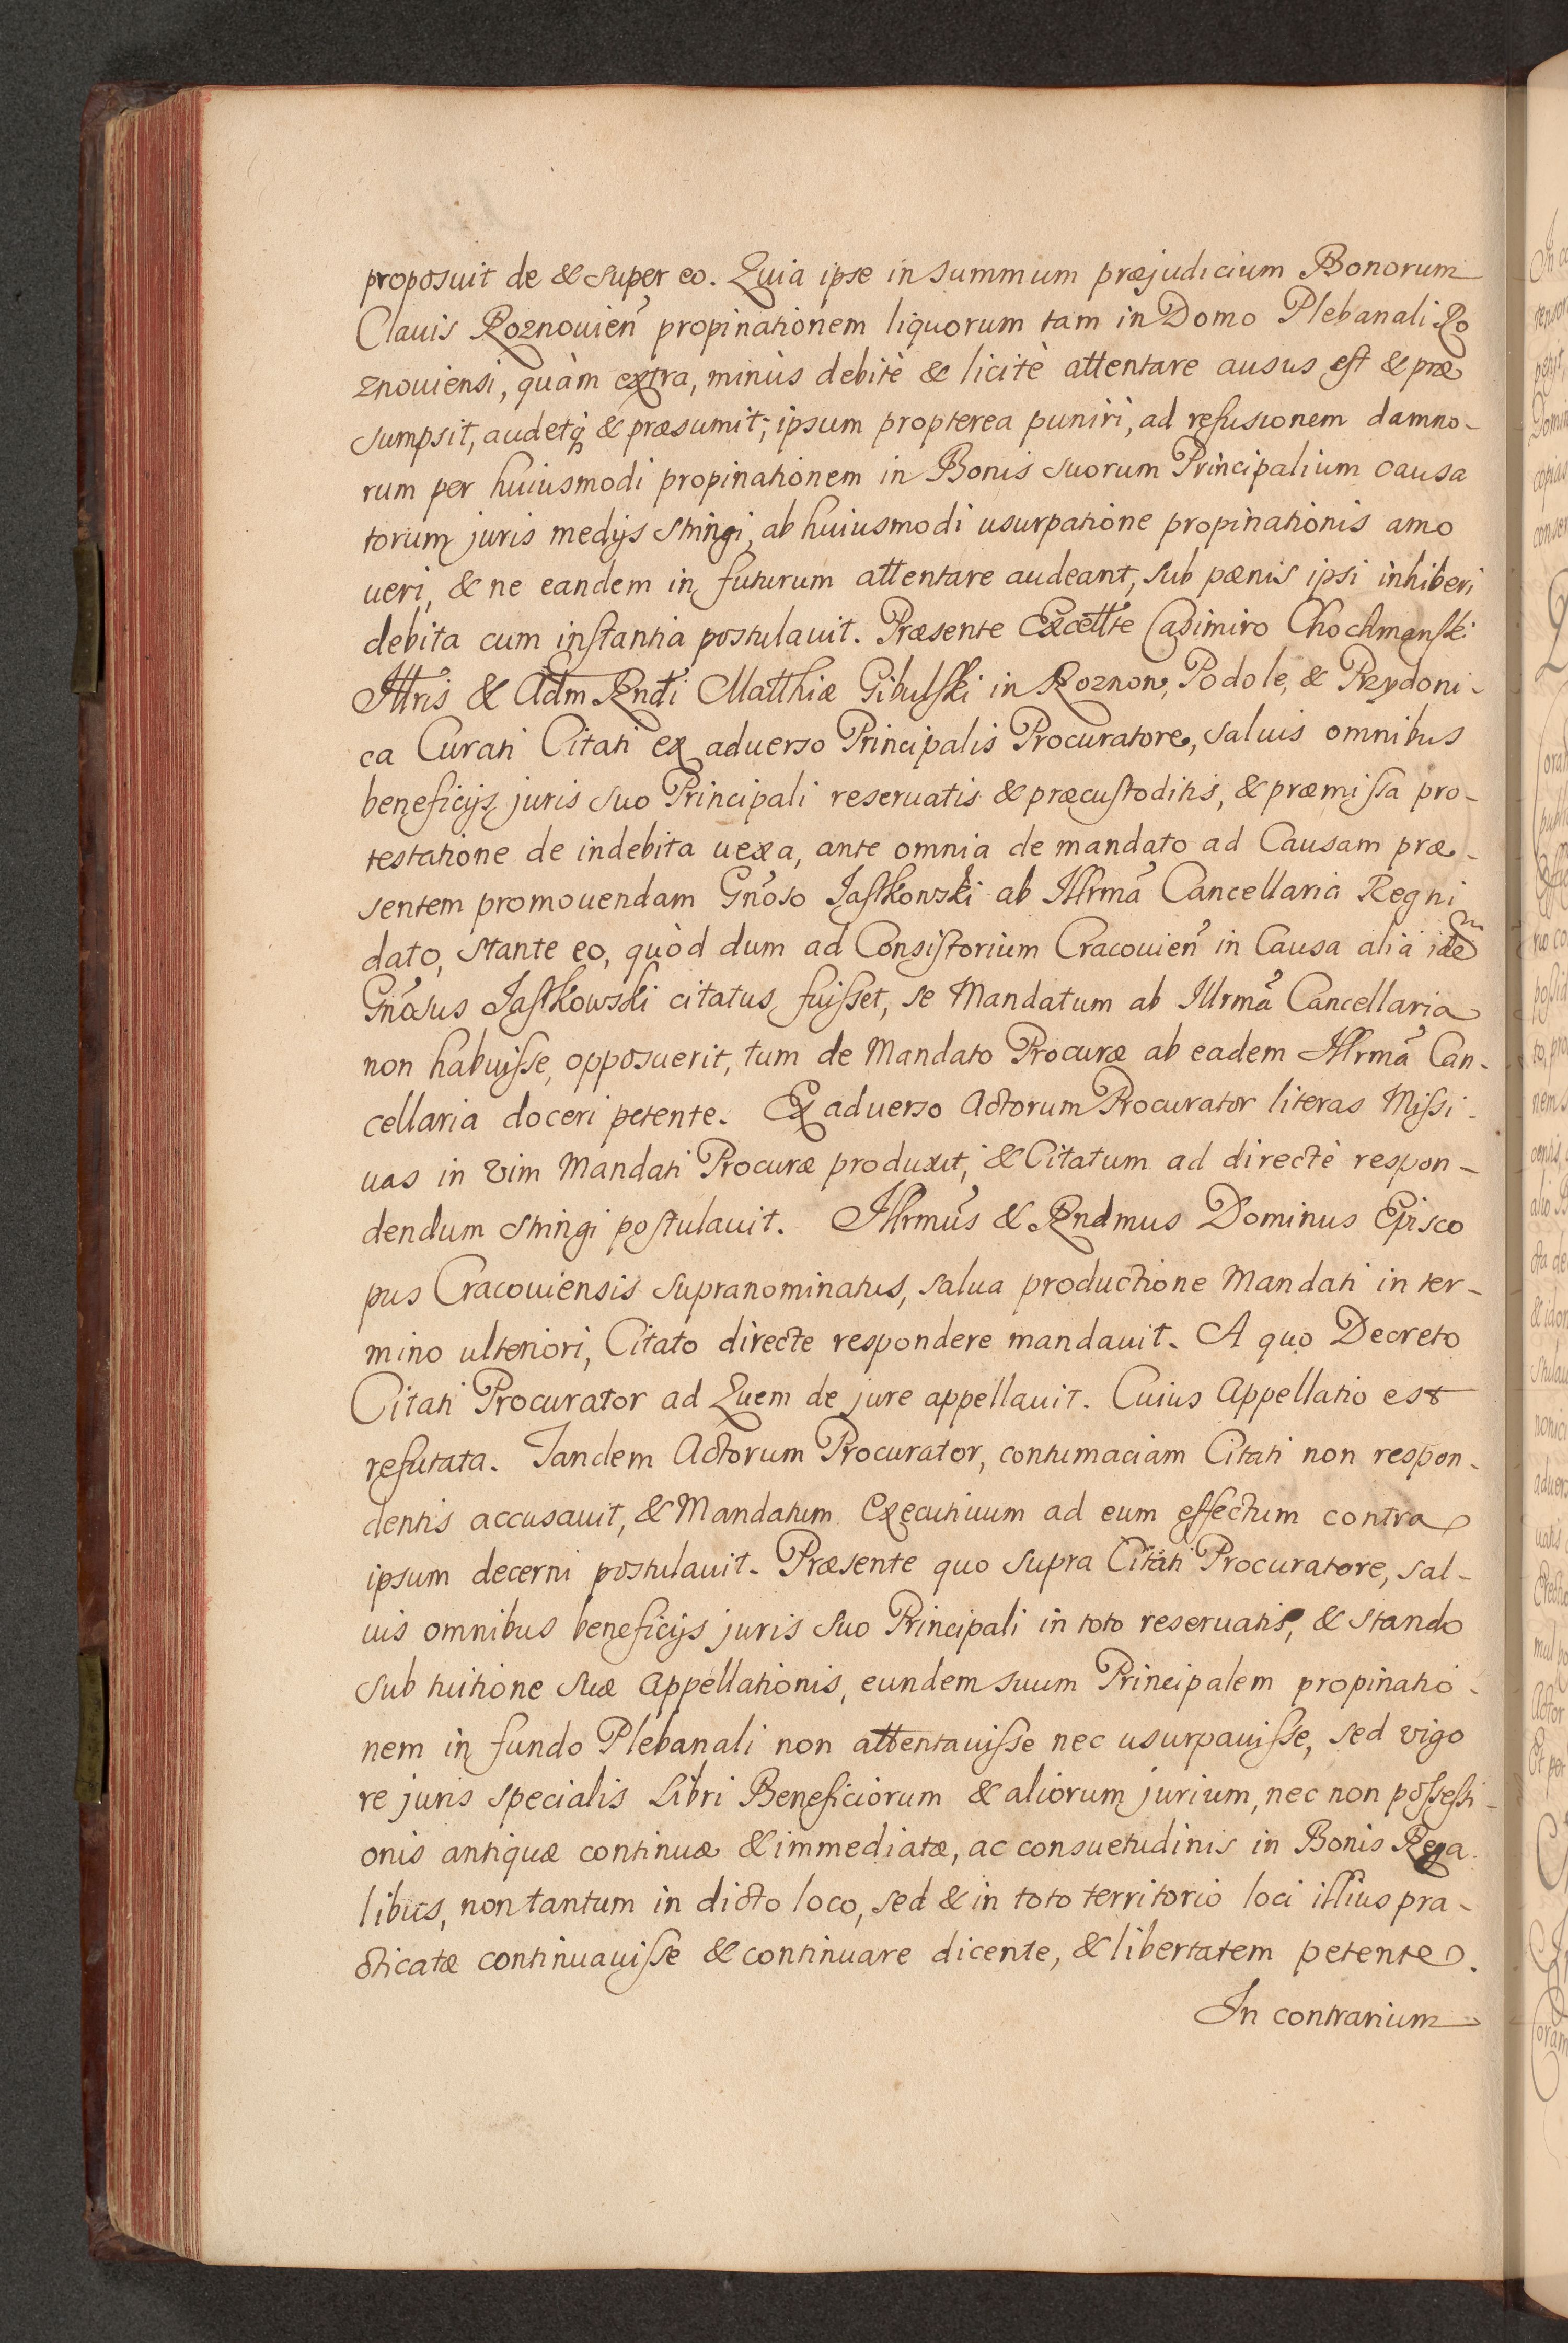 proposuit de & super eo. Quia ipse in summum præjudicium Bonorum
Clavis Roznouień propinationem liquorum tam in Domo Plebanali Ro
znouiensi, quàm extra, minùs debitè & licitè attentare ausus est & præ
sumpsit, audetq & præsumit; ipsum propterea puniri, ad refusionem damno-
rum per huiusmodi propinationem in Bonis suorum Principalium causa
torum juris medijs stringi, ab huiusmodi usurpatione propinationis amo
ueri, & ne eandem in futurum attentare audeant, sub pænis ipsi inhiberi
debita cum instantia postulauit. Præsente Excellte Casimiro Chochmanski
Illris & Adm Rndi Matthiæ Gibulski in Roznow, Podole, & Przydoni-
ca Curati Citati ex aduerso Principalis Procuratore, saluis omnibus
beneficijs juris suo Principali reseruatis & præcustoditis, & præmissa pro-
testatione de indebita uexa, ante omnia de mandato ad Causam præ-
sentem promouendam Gnoso Jastkowski ab Illrma Cancellaria Regni
dato, stante eo, quòd dum ad Consistorium Cracouień in Causa alia idem
Gnosus Jastkowski citatus fuisset, se Mandatum ab Illrma Cancellaria
non habuisse, opposuerit, tum de Mandato Procuræ ab eadem Illrma Can-
cellaria doceri petente. Ex aduerso Actorum Procurator literas Missi-
uas in vim Mandati Procuræ produxit, & Citatum ad directè respon-
dendum stringi postulauit. Illrmus & Rndmus Dominus Episco
pus Cracouiensis supranominatus, salua productione Mandati in ter-
mino ulteriori, Citato directe respondere mandauit. A quo Decreto
Citati Procurator ad Quem de jure appellauit. Cuius Appellatio est
refutata. Tandem Actorum Procurator, contumaciam Citati non respon-
dentis accusauit, & Mandatum Executiuum ad eum effectum contra
ipsum decerni postulauit. Præsente quo supra Citati Procuratore, sal-
uis omnibus beneficijs juris suo Principali in toto reseruatis, & stando
sub tuitione suæ Appellationis, eundem suum Principalem propinatio-
nem in fundo Plebanali non attentauisse nec usurpauisse, sed vigo
re juris specialis Libri Beneficiorum & aliorum jurium, nec non possessi-
onis antiquæ continuæ & immediatæ, ac consuetudinis in Bonis Rega-
libus, non tantum in dicto loco, sed & in toto territorio loci illius pra-
cticatæ continuauisse & continuare dicente, & libertatem petente.
In contrarium